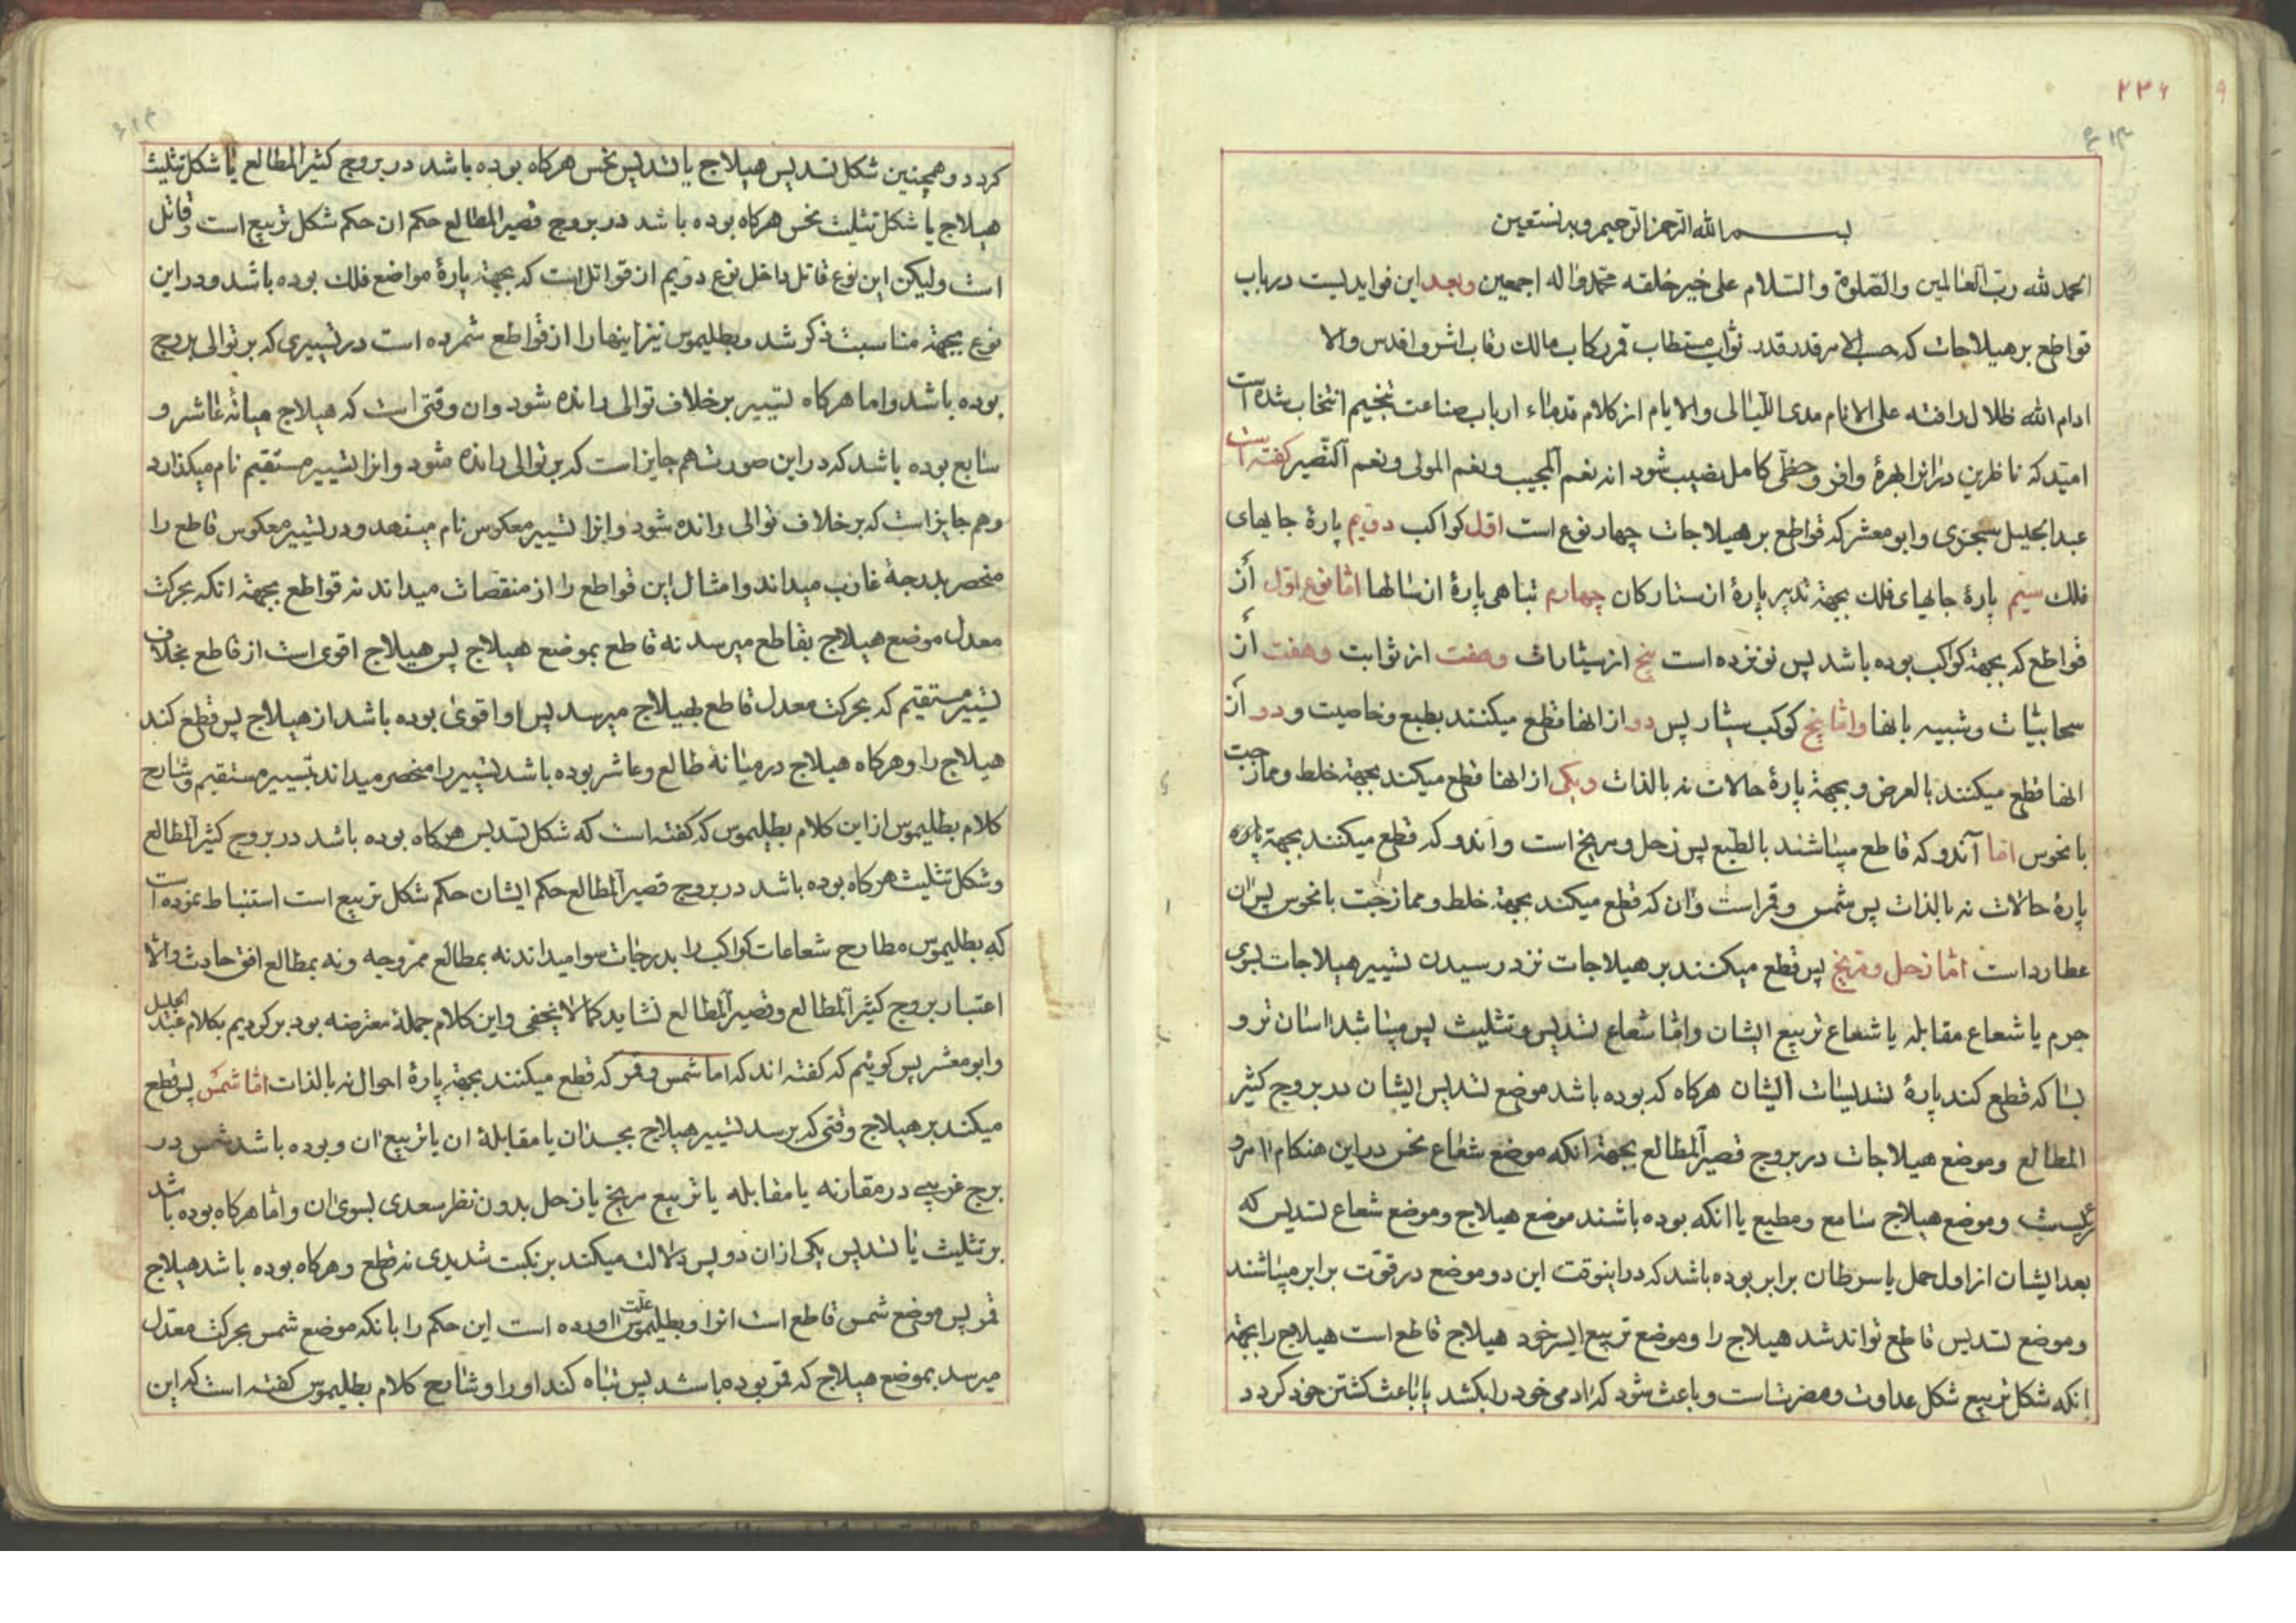 ۲۲۶
بسم الله الرحمن الرحیم وبه نستعین
الحمد لله رب العالمین والصلوة والسلام علی خیر خلقه محمد واله اجمعین وبعد این فوایدیست در باب
قواطع بر هیلاجات که حسب الامر قدر قدر نواب مستطاب قمر رکاب مالک رقاب اشرف اقدس والا
ادام الله ظلال رافته علی الانام مدی اللیالی والایام از کلام قدماء ارباب صناعت تنجیم انتخاب شده است
امید که ناظرین در انرا بهرهٔ وافر وحظی کامل نصیب شود انه نعم المجیب ونعم المولی ونعم النصیر کفته است
عبدالجلیل سجزی وابو معشر که قواطع بر هیلاجات چهار نوع است اول کواکب دویم پارهٔ جایهای
فلک سیم پارهٔ جایهای فلک بجهة تدبیر پارهٔ از ستارکان چهارم تباهی پارهٔ از سالها اما نوع اول از
قواطع که بجهة کواکب بوده باشد پس نوزده است پنج از سیارات وهفت از ثوابت وهفت از
سحابیات وشبیه بانها واما پنج کوکب سیار پس دو از انها قطع میکنند بطبع وخاصیت و دو از
انها قطع میکنند بالعرض و بجهة پارهٔ حالات نه بالذات ویکی از انها قطع میکند بجهة خلط وممازجت
با نحوس اما آندو که قاطع میباشند بالطبع پس زحل ومریخ است واندو که قطع میکنند بجهة پاره
پارهٔ حالات نه بالذات پس شمس وقمر است وان که قطع میکند بجهة خلط وممازجت با نحوس پس ان
عطارد است اما زحل ومریخ پس قطع میکنند بر هیلاجات نزد رسیدن تسییر هیلاجات بسوی
جرم یا شعاع مقابله یا شعاع تربیع ایشان واما شعاع تسدیس وتثلیث پس میباشد اسان تر و
بسا که قطع کند پارهٔ تسدیسات ایشان هرکاه که بوده باشد موضع تسدیس ایشان در بروج کثیر
المطالع وموضع هیلاجات در بروج قصیر المطالع بجهة انکه موضع شعاع نحس در این هنکام امر و
رئیست وموضع هیلاج سامع ومطیع یا انکه بوده باشند موضع هیلاج وموضع شعاع تسدیس که
بعد ایشان از اول حمل یا سرطان برابر بوده باشد که در اینوقت این دو موضع در قوت برابر میباشند
وموضع تسدیس قاطع تواند شد هیلاج را وموضع تربیع ایسر خود هیلاج قاطع است هیلاج را بجهة
انکه شکل تربیع شکل عداوت ومضرتست و باعث شود که ادمی خود را بکشد یا باعث کشتن خود کردد
کردد وهمچنین شکل تسدیس هیلاج یا تسدیس نحس هرکاه بوده باشد در بروج کثیر المطالع یا شکل تثلیث
هیلاج یا شکل تثلیث نحس هرکاه بوده باشد در بروج قصیر المطالع حکم ان حکم شکل تربیع است وقاتل
است ولیکن این نوع قاتل داخل نوع دویم از قواتل است که بجهة پارهٔ مواضع فلک بوده باشد ودر این
نوع بجهة مناسبت ذکر شد وبطلیموس نیز اینها را از قواطع شمرده است در تسییری که بر توالی بروج
بوده باشد واما هرکاه تسییر بر خلاف توالی رانده شود وان وقتی است که هیلاج میانهٔ عاشر و
سابع بوده باشد که در این صورت هم جایز است که بر توالی رانده شود وانرا تسییر مستقیم نام میکذارد
وهم جایز است که بر خلاف توالی رانده شود وانرا تسییر معکوس نام مینهد ودر تسییر معکوس قاطع را
منحصر بدرجهٔ غارب میداند وامثال این قواطع را از منقصات میداند نه قواطع بجهة انکه بحرکت
معدل موضع هیلاج بقاطع میرسد نه قاطع بموضع هیلاج پس هیلاج اقوی است از قاطع بخلاف
تسییر مستقیم که بحرکت معدل قاطع بهیلاج میرسد پس او اقوی بوده باشد از هیلاج پس قطع کند
هیلاج را وهرکاه هیلاج در میانهٔ طالع وعاشر بوده باشد تسییر را منحصر میداند بتسییر مستقیم وشارح
کلام بطلیموس از این کلام بطلیموس که کفته است که شکل تسدیس هرکاه بوده باشد در بروج کثیر المطالع
وشکل تثلیث هرکاه بوده باشد در بروج قصیر المطالع حکم ایشان حکم شکل تربیع است استنباط نموده است
که بطلیموس مطارح شعاعات کواکب را بدرجات سوا میداند نه بمطالع ممزوجه ونه بمطالع افق حادث والا
اعتبار بروج کثیر المطالع وقصیر المطالع نشاید کما لا یخفی واین کلام جملهٔ معترضه بود برکردیم بکلام عبدالجلیل
وابو معشر پس کوئیم که کفته اند که اما شمس وقمر که قطع میکنند بجهة پارهٔ احوال نه بالذات اما شمس پس قطع
میکند بر هیلاج وقتی که برسد تسییر هیلاج بجسد ان یا مقابلهٔ ان یا تربیع ان وبوده باشد شمس در
برج غریبی در مقارنه یا مقابله یا تربیع مریخ یا زحل بدون نظر سعدی بسوی ان واما هرکاه بوده باشد
بر تثلیث یا تسدیس یکی از ان دو پس دلالت میکند بر نکبت شدیدی نه قطع وهرکاه بوده باشد هیلاج
قمر پس موضع شمس قاطع است انرا وبطلیموس علت اورده است این حکم را بانکه موضع شمس بحرکت معدل
میرسد بموضع هیلاج که قمر بوده باشد پس تباه کند او را وشارح کلام بطلیموس کفته است که این